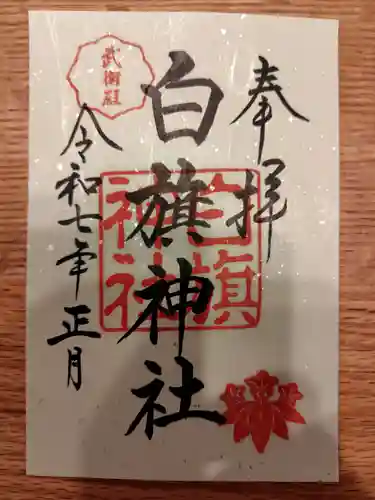 奉拝
白旗神社
白旗
神社
武衛殿
令和七年正月